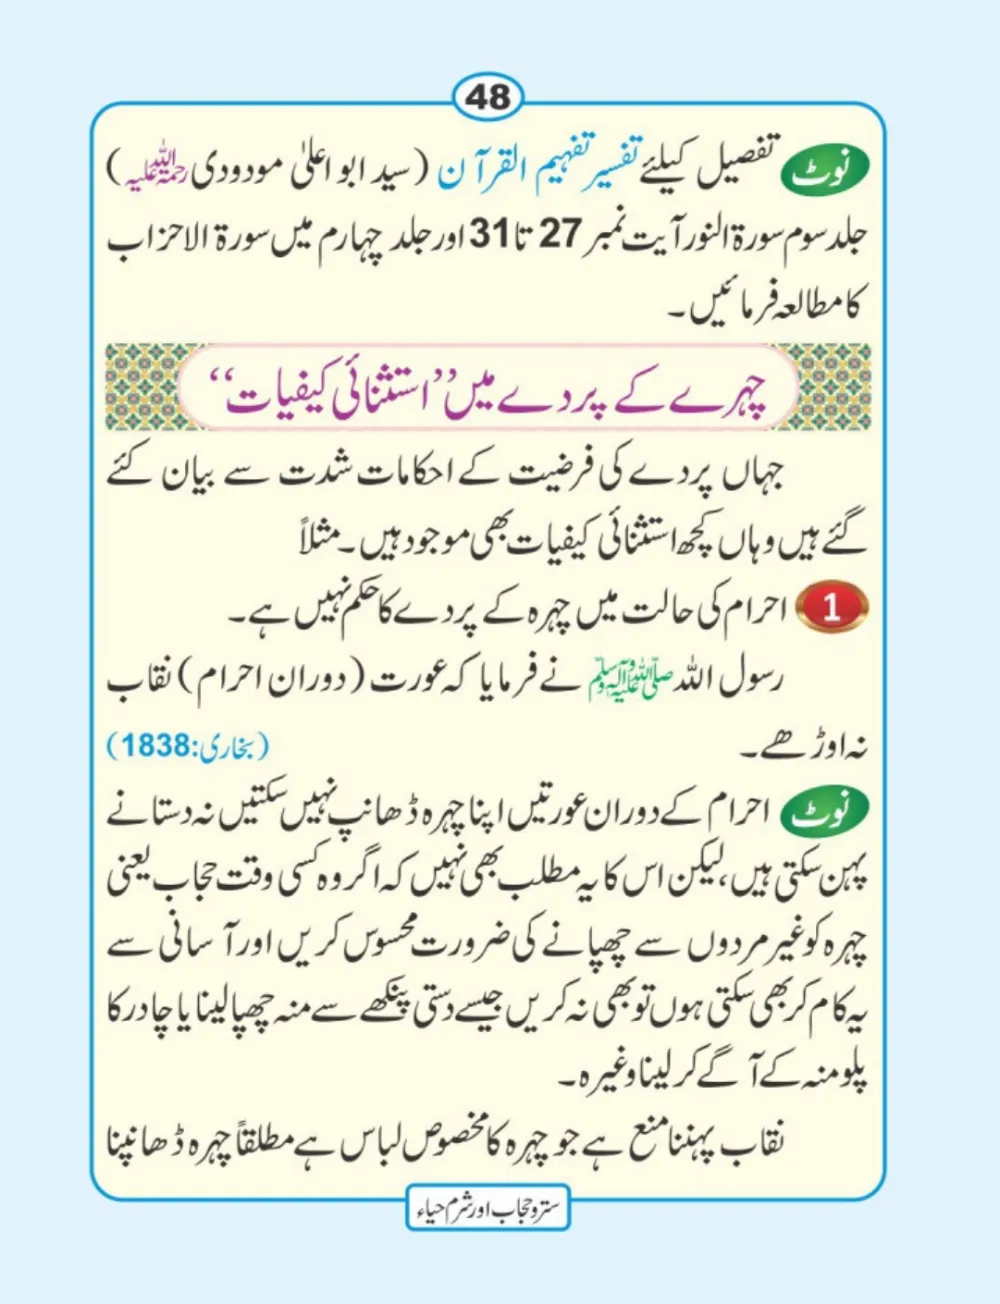 48
نوٹ تفصیل کیلئے تفسیر تفہیم القرآن (سید ابو اعلیٰ مودودی رحمۃ اللہ علیہ)
جلد سوم سورۃ النور آیت نمبر 27 تا 31 اور جلد چہارم میں سورۃ الاحزاب
کا مطالعہ فرمائیں۔
چہرے کے پردے میں ”استثنائی کیفیات“
جہاں پردے کی فرضیت کے احکامات شدت سے بیان کئے
گئے ہیں وہاں کچھ استثنائی کیفیات بھی موجود ہیں۔ مثلاً
1 احرام کی حالت میں چہرہ کے پردے کا حکم نہیں ہے۔
رسول اللہ صلی اللہ علیہ وآلہ وسلم نے فرمایا کہ عورت (دوران احرام) نقاب
نہ اوڑھے۔ (بخاری:1838)
نوٹ احرام کے دوران عورتیں اپنا چہرہ ڈھانپ نہیں سکتیں نہ دستانے
پہن سکتی ہیں، لیکن اس کا یہ مطلب بھی نہیں کہ اگر وہ کسی وقت حجاب یعنی
چہرہ کو غیر مردوں سے چھپانے کی ضرورت محسوس کریں اور آسانی سے
یہ کام کر بھی سکتی ہوں تو بھی نہ کریں جیسے دستی پنکھے سے منہ چھپا لینا یا چادر کا
پلو منہ کے آگے کر لینا وغیرہ۔
نقاب پہننا منع ہے جو چہرہ کا مخصوص لباس ہے مطلقاً چہرہ ڈھانپنا
ستر و حجاب اور شرم حیاء